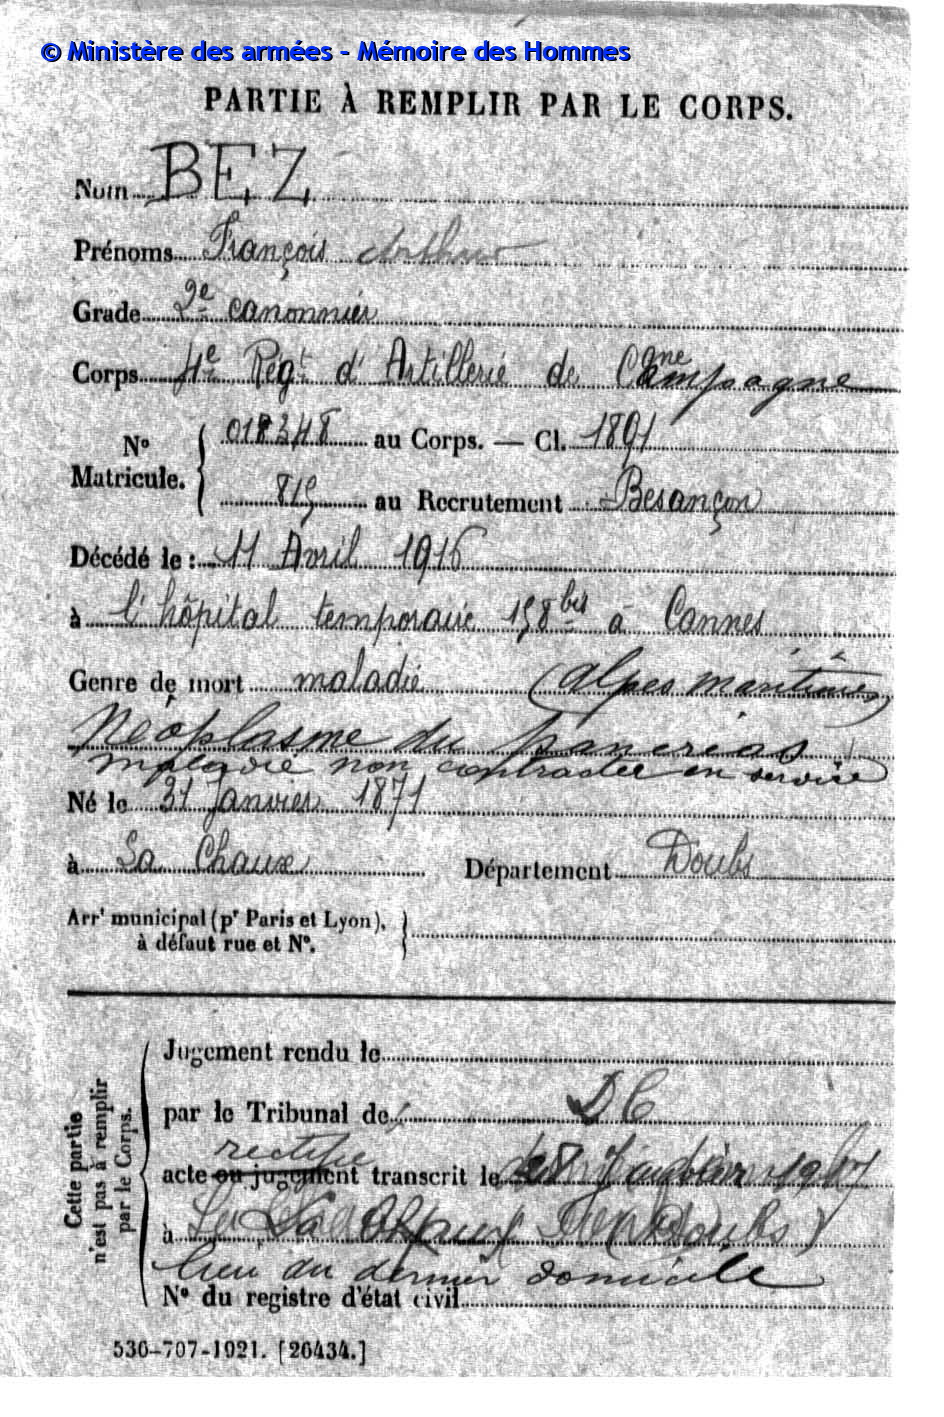 © Ministère des armées - Mémoire des Hommes
PARTIE À REMPLIR PAR LE CORPS.
Nom BEZ
Prénoms François Arthur
Grade 2e canonnier
Corps 4e Régt d'Artillerie de Campagne
N° Matricule. 018348 au Corps. — Cl. 1891
815 au Recrutement Besançon
Décédé le : 11 Avril 1916
à l'hôpital temporaire 158 bis à Cannes
Genre de mort maladie (Alpes Maritimes)
Néoplasme du pancréas
maladie non contractée en service
Né le 31 Janvier 1871
à La Chaux Département Doubs
Arrt municipal (pr Paris et Lyon),
à défaut rue et N°.
Cette partie n'est pas à remplir par le Corps.
Jugement rendu le
par le Tribunal de DC
rectifié
acte ou jugement transcrit le
à La Chaux Doubs)
lieu du dernier domicile
N° du registre d'état civil
536-707-1921. [26434.]